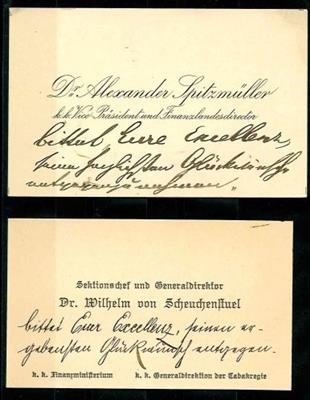 Dr. Alexander Spitzmüller
k.k. Vice-Präsident und Finanzlandesdirector
bittet, Eure Excellenz,
seinen herzlichsten Glückwunsch
entgegenzunehmen.
Sektionschef und Generaldirektor
Dr. Wilhelm von Scheuchenstuel
bittet Euer Excellenz, seinen er-
gebensten Glückwunsch entgegen-
k. k. Finanzministerium k. k. Generaldirektion der Tabakregie